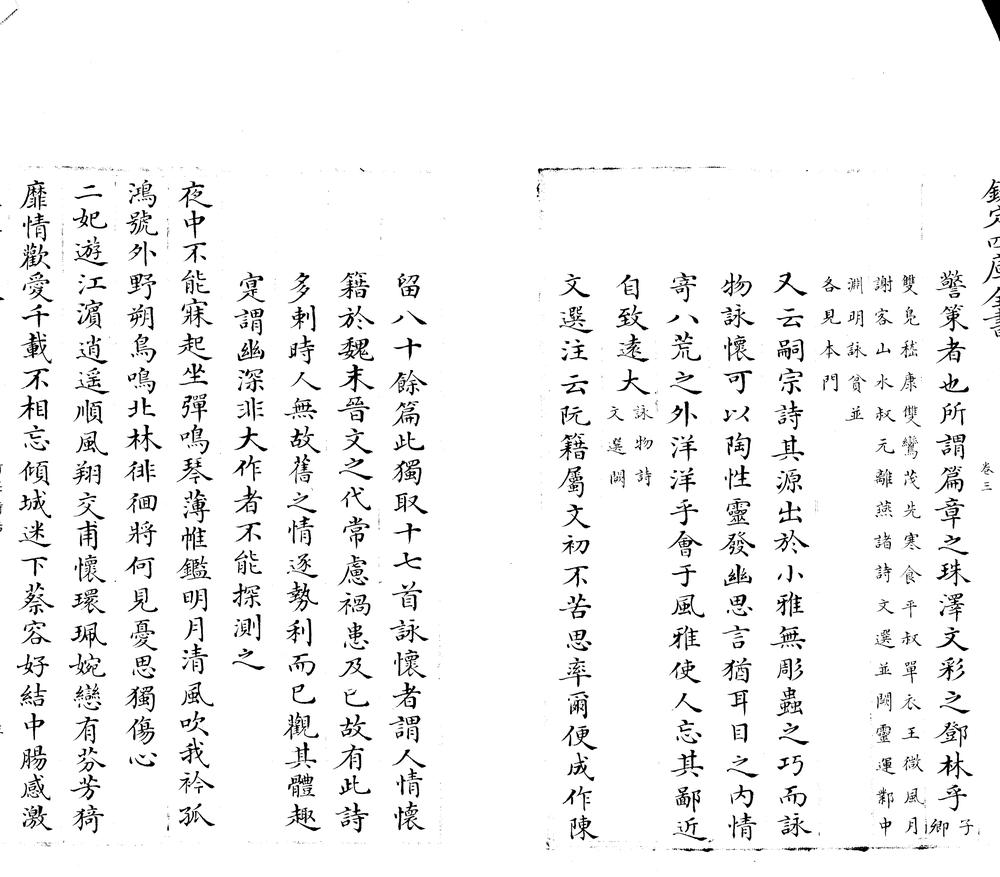 欽定四庫全書
卷三
警策者也所謂篇章之珠澤文彩之鄧林乎子卿
雙鳧嵇康雙鸞茂先寒食平叔單衣王微風月
謝客山水叔元離燕諸詩文選並闕靈運鄴中
淵明詠貧並
各見本門
又云嗣宗詩其源出於小雅無彫蟲之巧而詠
物詠懷可以陶性靈發幽思言猶耳目之內情
寄八荒之外洋洋乎會于風雅使人忘其鄙近
自致遠大詠物詩文選闕
文選注云阮籍屬文初不苦思率爾便成作陳
留八十餘篇此獨取十七首詠懷者謂人情懷
籍於魏末晉文之代常慮禍患及已故有此詩
多刺時人無故舊之情逐勢利而已觀其體趣
寔謂幽深非大作者不能探測之
夜中不能寐起坐彈鳴琴薄帷鑑明月清風吹我衿孤
鴻號外野朔鳥鳴北林徘徊將何見憂思獨傷心
二妃遊江濱逍遥順風翔交甫懷環珮婉孌有芬芳猗
靡情歡愛千載不相忘傾城迷下蔡容好結中腸感激